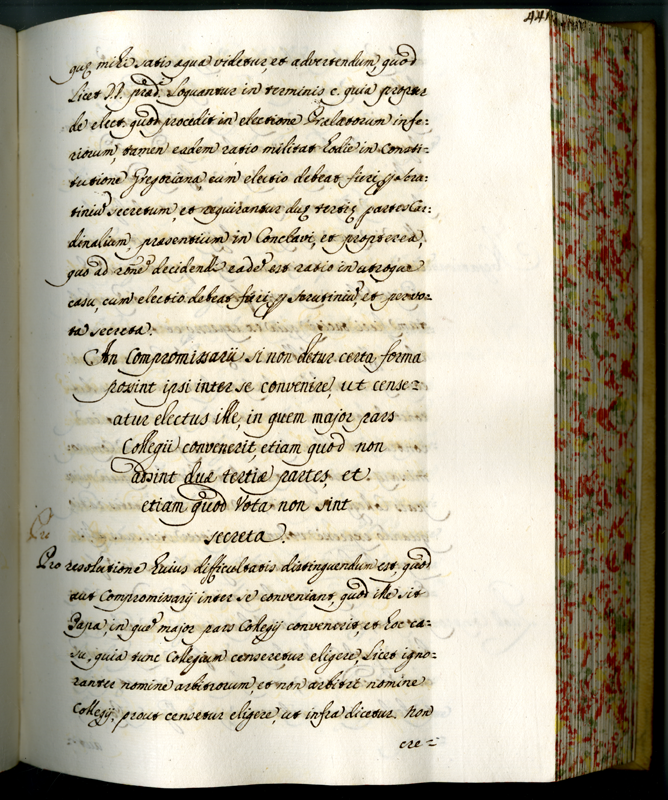 441
quę mihi satis aqua videtur, et advertendum, quod
Licet J.J. pręd. loquantur in terminis c. quia propter
de elect. quod procedit in electione Prælatorum infe-
riorum, tamen eadem ratio militat hodie in Consti-
tutione Gregoriana cum electio debeat fieri p Scru-
tiniũ secretum, et requirantur duę tertię partes Car-
dinalium, præsentium in Conclavi, et propterea,
quo ad ronẽ decidendi eadẽ est ratio in utroque
casu, cum electio debeat fieri p Scrutiniũ, et per vo-
ta secreta.
An Compromissarii si non detur certa forma
possint ipsi inter se convenire, ut cense-
atur electus ille, in quem major pars
Collegii convenerit, etiam quod non
adsint duæ tertiæ partes, et
etiam quod Vota non sint
secreta.
Pro resolutione huius difficultatis distinguendum est, quod
aut Compromissarij inter se conveniant, quod ille sit
Papa, in quẽ major pars Collegij convenerit, et hoc ca-
su, quia tunc Collegium censeretur eligere, Licet igno-
ranter nomine arbitrorum, et non arbitri nomine
Collegij, prout censetur eligere, ut infra dicetur. Non
cre-